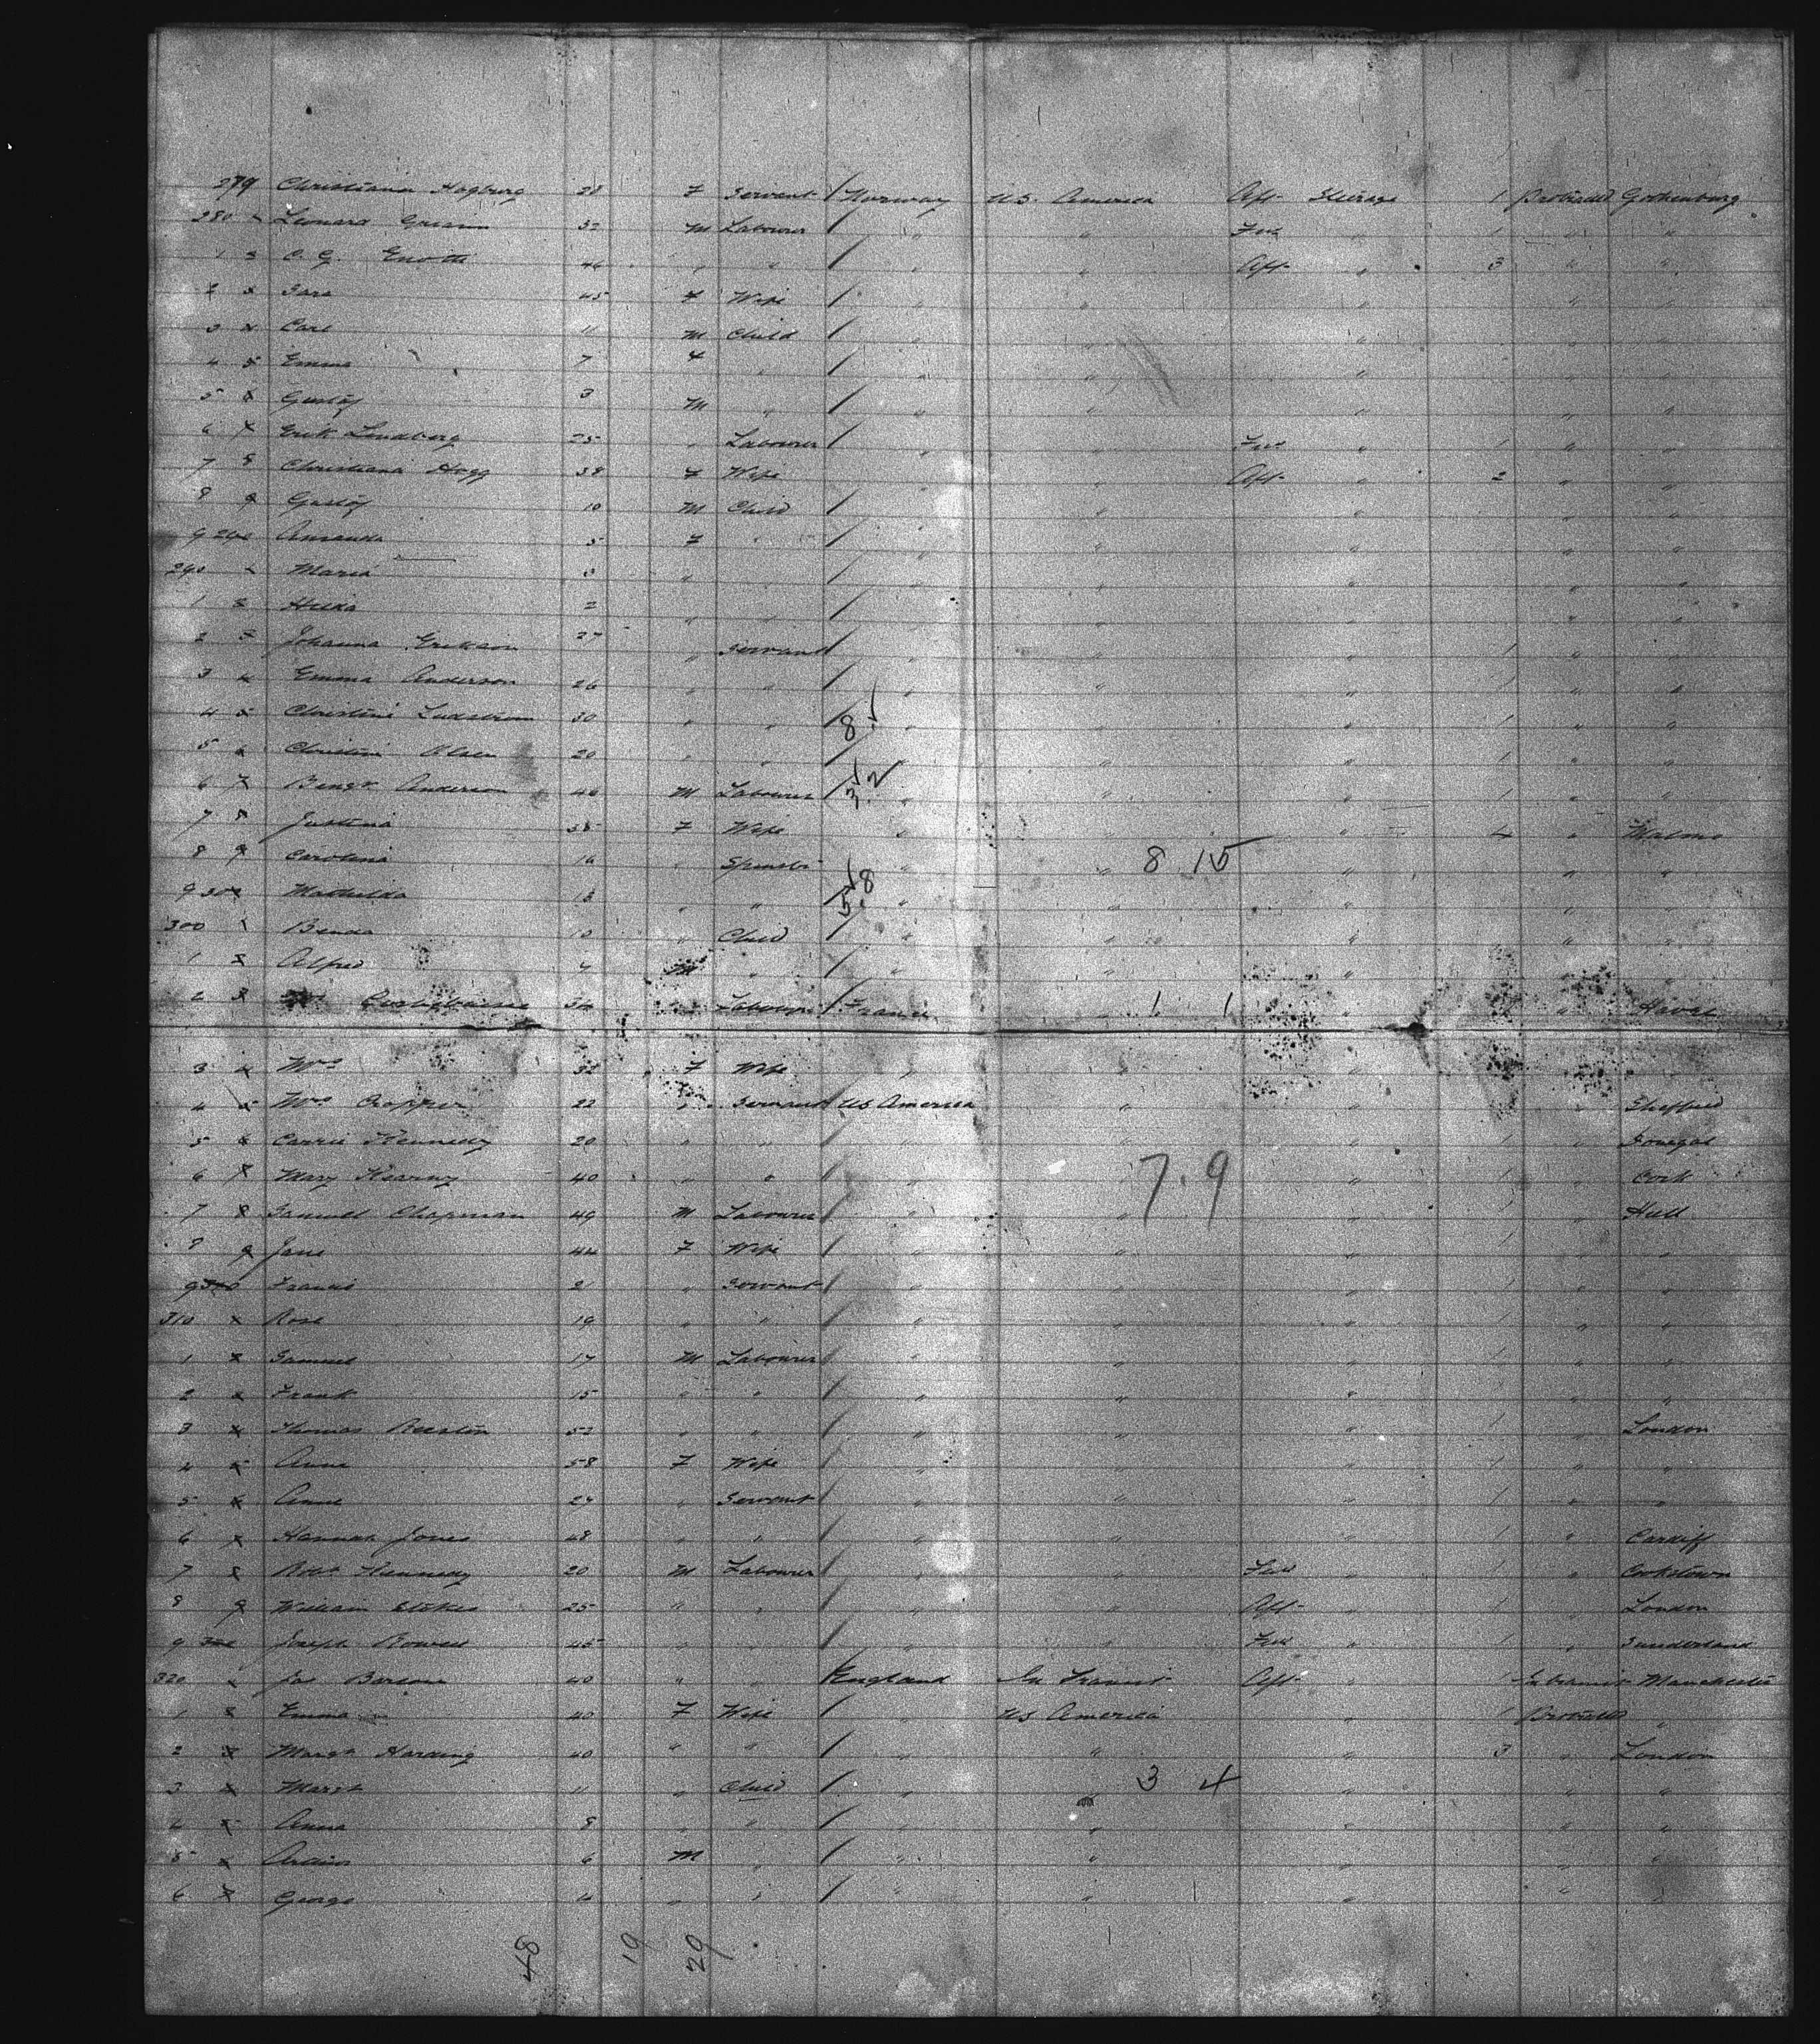 279 Christiana Hogberg 28 F Servant / Norway U.S. America Aft Steerage 1 Protracted Gothenburg
280 Leonard 32 M Labourer / " " Fwd " 1 " "
1 C. G. 46 " " / " " Aft " 3 " "
2 Sara 45 F Wife / " " " " "
3 Carl 11 M Child / " " " " "
4 Emma 7 F " / " " " " "
5 Gustaf 3 M " / " " " " "
6 Erik Lindberg 25 " Labourer / " " Fwd " 1 " "
7 Christiana Hogg 38 F Wife " " Aft " 2 " "
8 Gustaf 10 M Child / " " " " "
9 Amanda 5 F " / " " " " "
290 Maria 3 " " / " " " " "
1 Hilda 2 " " / " " " " "
2 Johanna Erikson 27 " Servant / " " " 1 " "
3 Emma Anderson 26 " " / " " " 1 " "
4 Christine 30 " " / " " " 1 " "
8
5 Christine Olsen 20 " " / " " " 1 " "
6 Bengt Anderson 40 M Labourer / " " " 1 " "
3 2
7 Justina 38 F Wife " " " 4 " Malmo
8 Carolina 16 " Spinster " " " " "
8 15
9 Mathilda 13 " " / " " " " "
5 8
300 Benda 10 " Child / " " " " "
1 Alfred 4 M " / " " " " "
2 34 " Labourer / France " " " Havre
1 1
3 Mrs 32 F Wife " "
4 Mrs Cropper 22 " Servant / US America " " " Sheffield
5 Carrie Kennedy 20 " " / " " " 1 " Donegal
6 Mary Kearny 40 " " / " " " 1 " Cork
7.9
7 Samuel Chapman 49 M Labourer / " " " 1 " Hull
8 Jane 44 F Wife / " " " 1 " "
9 Francis 21 " Servant / " " " 1 " "
310 Rose 19 " " / " " " 1 " "
1 Samuel 17 M Labourer / " " " 1 " "
2 Frank 15 " " / " " " 1 " "
3 Thomas Beeston 52 " " / " " " 1 " London
4 Anne 58 F Wife / " " " 1 " "
5 Anne 24 " Servant / " " " 1 " "
6 Hannah Jones 48 " " / " " " 1 " Cardiff
7 Robt Kennedy 20 M Labourer / " " Fwd " 1 " Cookstown
8 William Stokes 25 " " / " " Aft " 1 " London
9 Joseph Bowell 45 " " / " " Fwd " 1 " Sunderland
320 Jas 40 " " / England In Transit Aft " 1 In transit Manchester
1 Emma 40 F Wife / " US America " 1 Protracted "
2 Margt Harding 40 " " / " " " 3 " London
3 Margt 11 " Child / " " " " "
3 4
4 Anna 8 " " / " " " " "
5 6 M " / " " " " "
6 George 4 " " / " " " " "
48 19 29